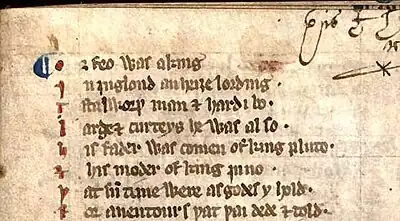 Orfeo was a king
In Inglond an heiȝe lording
A stalworþ man & hardi bo
Large & curteys he was al so
His fader was comen of king pluto
& his moder of king iuno
Þat sū time were as godes y hold
For auentours þat þai dede & told